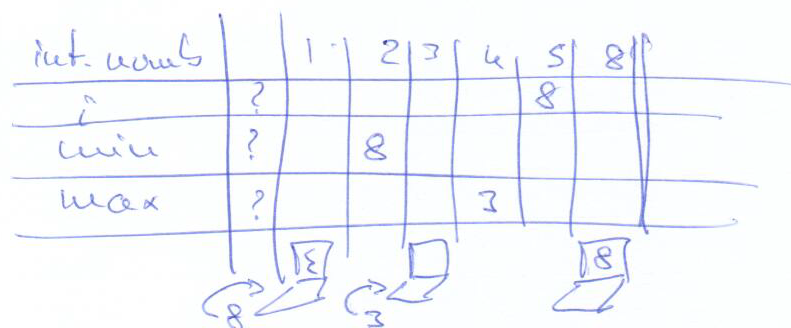 int. nomb 1 2 3 4 5 8
i ? 8
min ? 8
max ? 3
8 3 8